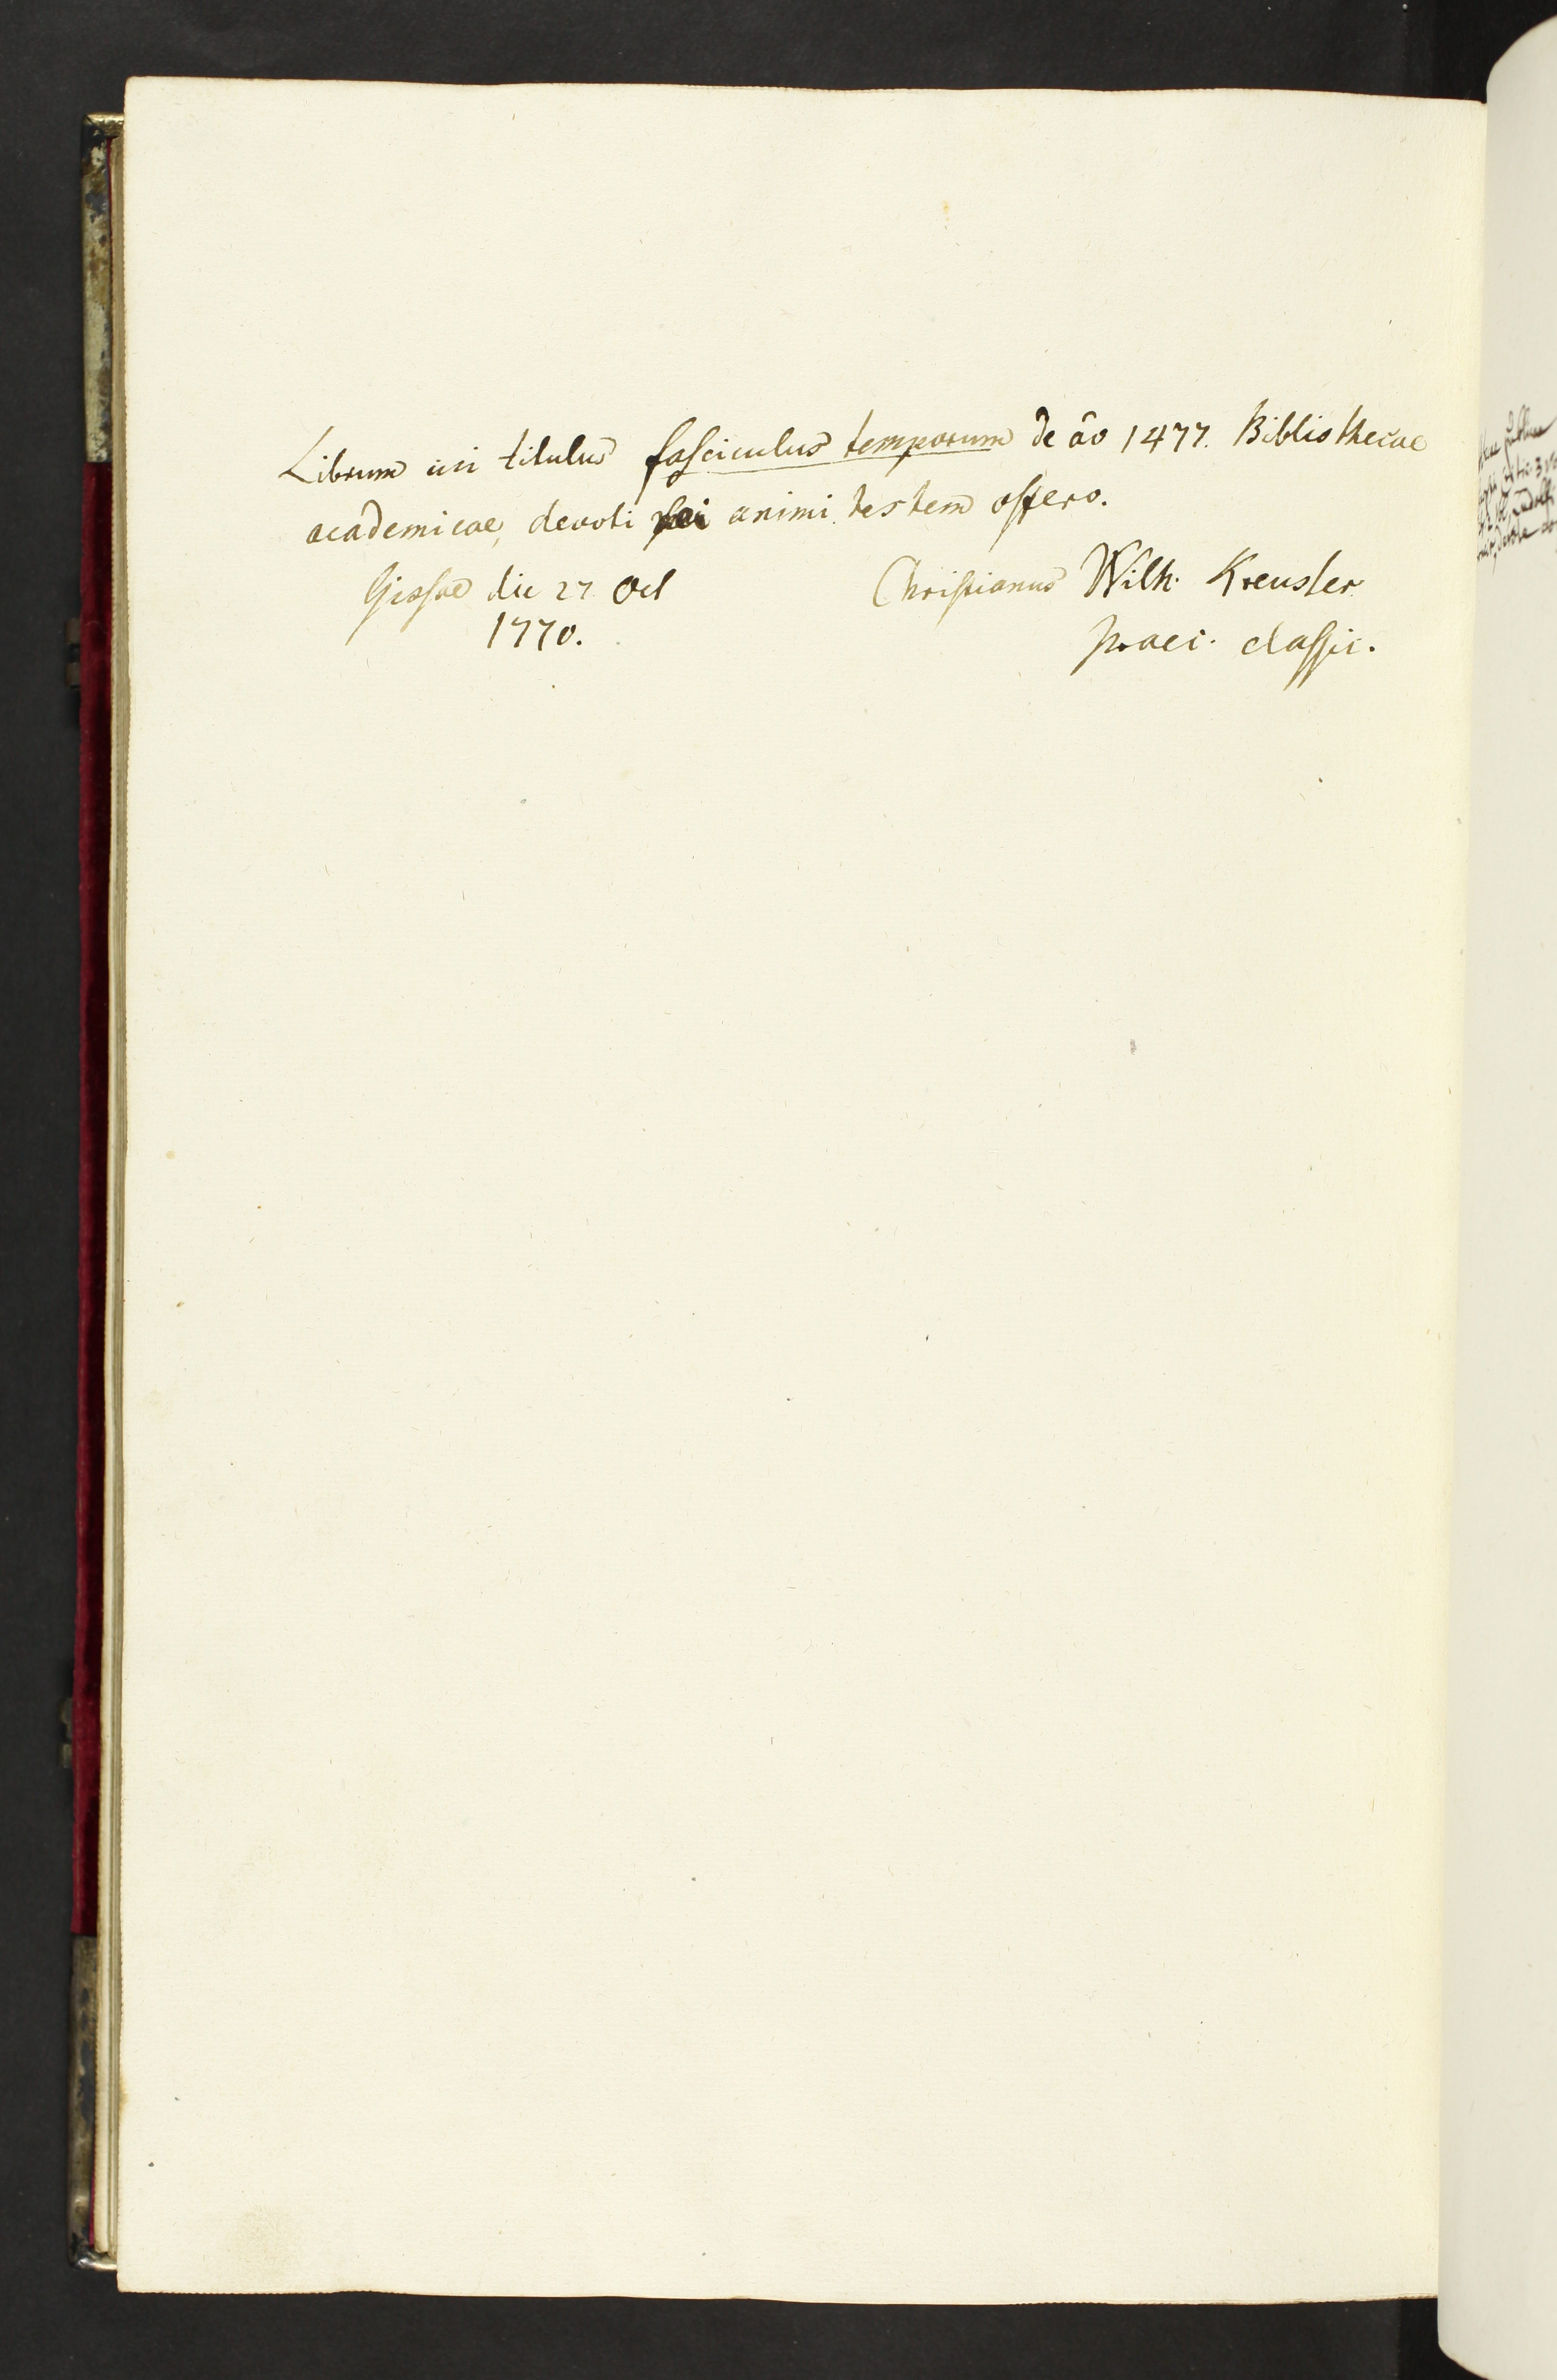 Librum cui titulus fasciculus temporum de ão 1477. Bibliothecae
academicae, devoti animi testem offero.
Gissae die 27 Oct
1770.
Christianus Wilh. Kreusler
praec. classic.